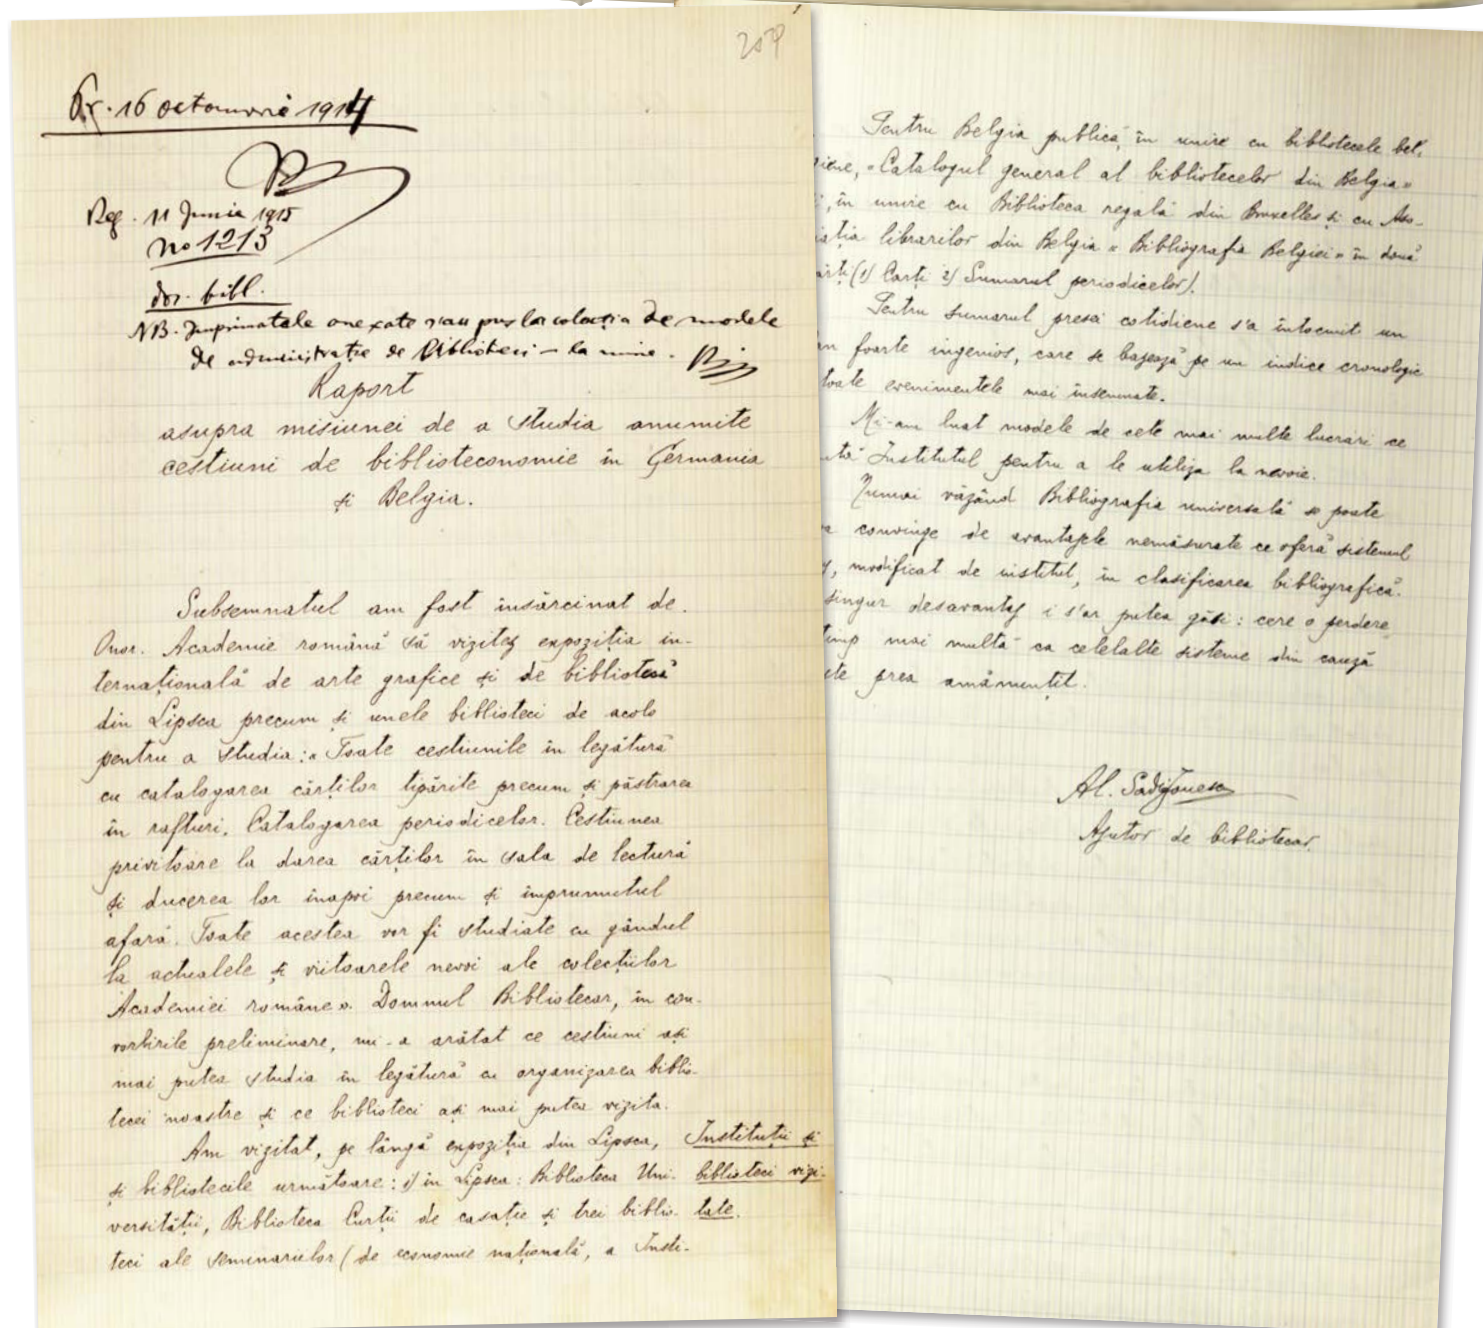 16 octomvrie 1914
Reg. 11 Junie 1915
no 1213
dos. bibl.
NB. Imprimatele anexate s'au pus la colecția de modele
de administrație de Biblioteci — la mine.
Raport
asupra misiunei de a studia anumite
cestiuni de biblioteconomie în Germania
și Belgia.
Subsemnatul am fost însărcinat de
Onor. Academie română să vizitez expoziția in-
ternațională de arte grafice și de bibliotecă
din Lipsca precum și unele biblioteci de acolo
pentru a studia: „Toate cestiunile în legătură
cu catalogarea cărților tipărite precum și păstrarea
în rafturi. Catalogarea periodicelor. Cestiunea
privitoare la darea cărților în sala de lectură
și ducerea lor înapoi precum și împrumutul
afară. Toate acestea vor fi studiate cu gândul
la actualele și viitoarele nevoi ale colecțiilor
Academiei române». Domnul Bibliotecar, în con-
vorbirile preliminare, mi-a arătat ce cestiuni ași
mai putea studia în legătură cu organizarea biblio-
tecei noastre și ce biblioteci ași mai putea vizita.
Am vizitat, pe lângă expoziția din Lipsca,
și bibliotecile următoare: 1) în Lipsca: Biblioteca Uni-
versității, Biblioteca Curții de casație și trei biblio-
teci ale seminariilor (de economie națională, a Insti-
Instituții și
biblioteci vizi-
tate.
Pentru Belgia publică, în unire cu bibliotecele bel-
giene, «Catalogul general al bibliotecelor din Belgia»
, în unire cu Biblioteca regală din Bruxelles și cu Aso-
iația librarilor din Belgia «Bibliografia Belgiei» în două
ărți (1) Cărți 2) Sumarul periodicelor).
Pentru sumarul presei cotidiene s'a întocmit un
an foarte ingenios, care se bazează pe un indice cronologic
toate evenimentele mai însemnate.
Mi-am luat modele de cele mai multe lucrări ce
tă Institutul pentru a le utiliza la nevoie.
Numai văzând Bibliografia universală se poate
a convinge de avantajele nemăsurate ce oferă sistemul
y, modificat de institut, în clasificarea bibliografică.
singur desavantaj i s'ar putea găsi: cere o perdere
timp mai multă ca celelalte sisteme din cauză
este prea amănunțit.
Al. Sadi Ionescu
Ajutor de bibliotecar.